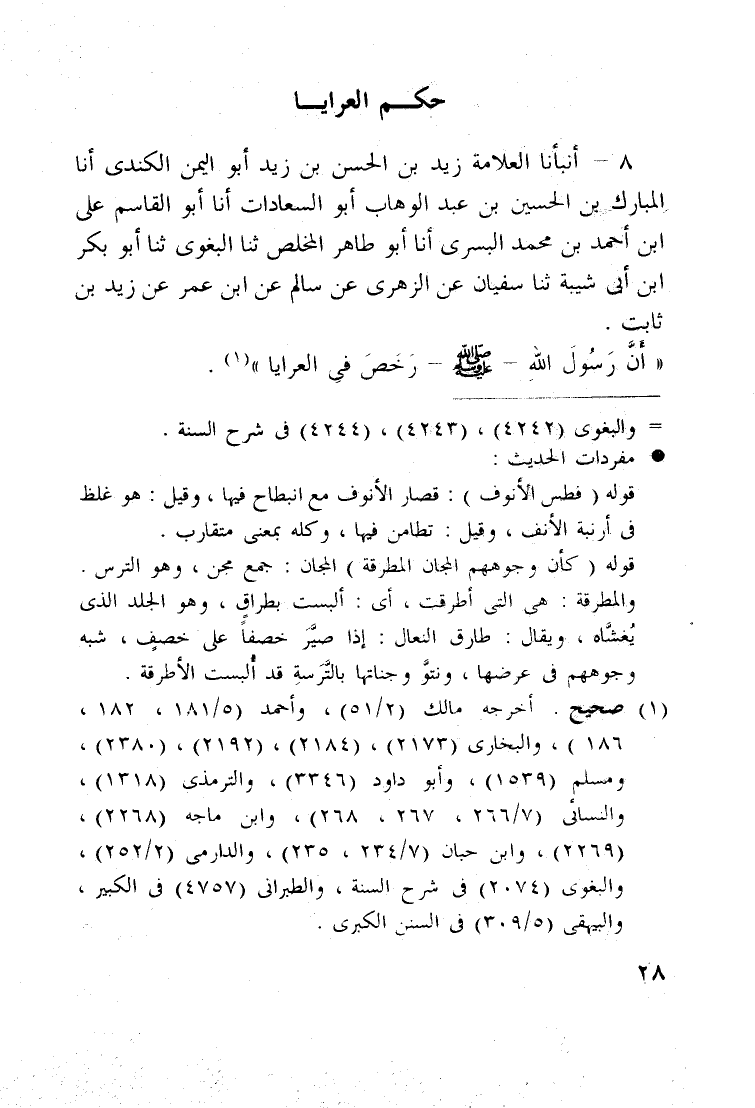 حكم العرايا
٨ – أنبأنا العلامة زيد بن الحسن بن زيد أبو اليمن الكندى أنا
المبارك بن الحسين بن عبد الوهاب أبو السعادات أنا أبو القاسم على
ابن أحمد بن محمد البسرى أنا أبو طاهر المخلص ثنا البغوى ثنا أبو بكر
ابن أبى شيبة ثنا سفيان عن الزهرى عن سالم عن ابن عمر عن زيد بن
ثابت .
« أَنَّ رَسُولَ اللهِ – ﷺ – رَخَصَ فى العرايا »(١) .
= والبغوى (٤٢٤٢) ، (٤٢٤٣) ، (٤٢٤٤) فى شرح السنة .
● مفردات الحديث :
قوله ( فطس الأنوف ) : قصار الأنوف مع انبطاح فيها ، وقيل : هو غلظ
فى أرنبة الأنف ، وقيل : تطامن فيها ، وكله بمعنى متقارب .
قوله ( كأن وجوههم المجان المطرقة ) المجان : جمع مجن ، وهو الترس .
والمطرقة : هى التى أطرقت ، أى : ألبست بطراقٍ ، وهو الجلد الذى
يُغشَّاه ، ويقال : طارق النعال : إذا صيَّر خصفاً على خصفٍ ، شبه
وجوههم فى عرضها ، ونتوَّ وجناتها بالتَّرَسةِ قد أُلبست الأطرقة .
(١) صحيح . أخرجه مالك (٥١/٢) ، وأحمد (١٨١/٥ ، ١٨٢ ،
١٨٦ ) ، والبخارى (٢١٧٣) ، (٢١٨٤) ، (٢١٩٢) ، (٢٣٨٠) ،
ومسلم (١٥٣٩) ، وأبو داود (٣٣٤٦) ، والترمذى (١٣١٨) ،
والنسائى (٢٦٦/٧ ، ٢٦٧ ، ٢٦٨) ، وابن ماجه (٢٢٦٨) ،
(٢٢٦٩) ، وابن حبان (٢٣٤/٧ ، ٢٣٥) ، والدارمى (٢٥٢/٢) ،
والبغوى (٢٠٧٤) فى شرح السنة ، والطبرانى (٤٧٥٧) فى الكبير ،
والبيهقى (٣٠٩/٥) فى السنن الكبرى .
٢٨